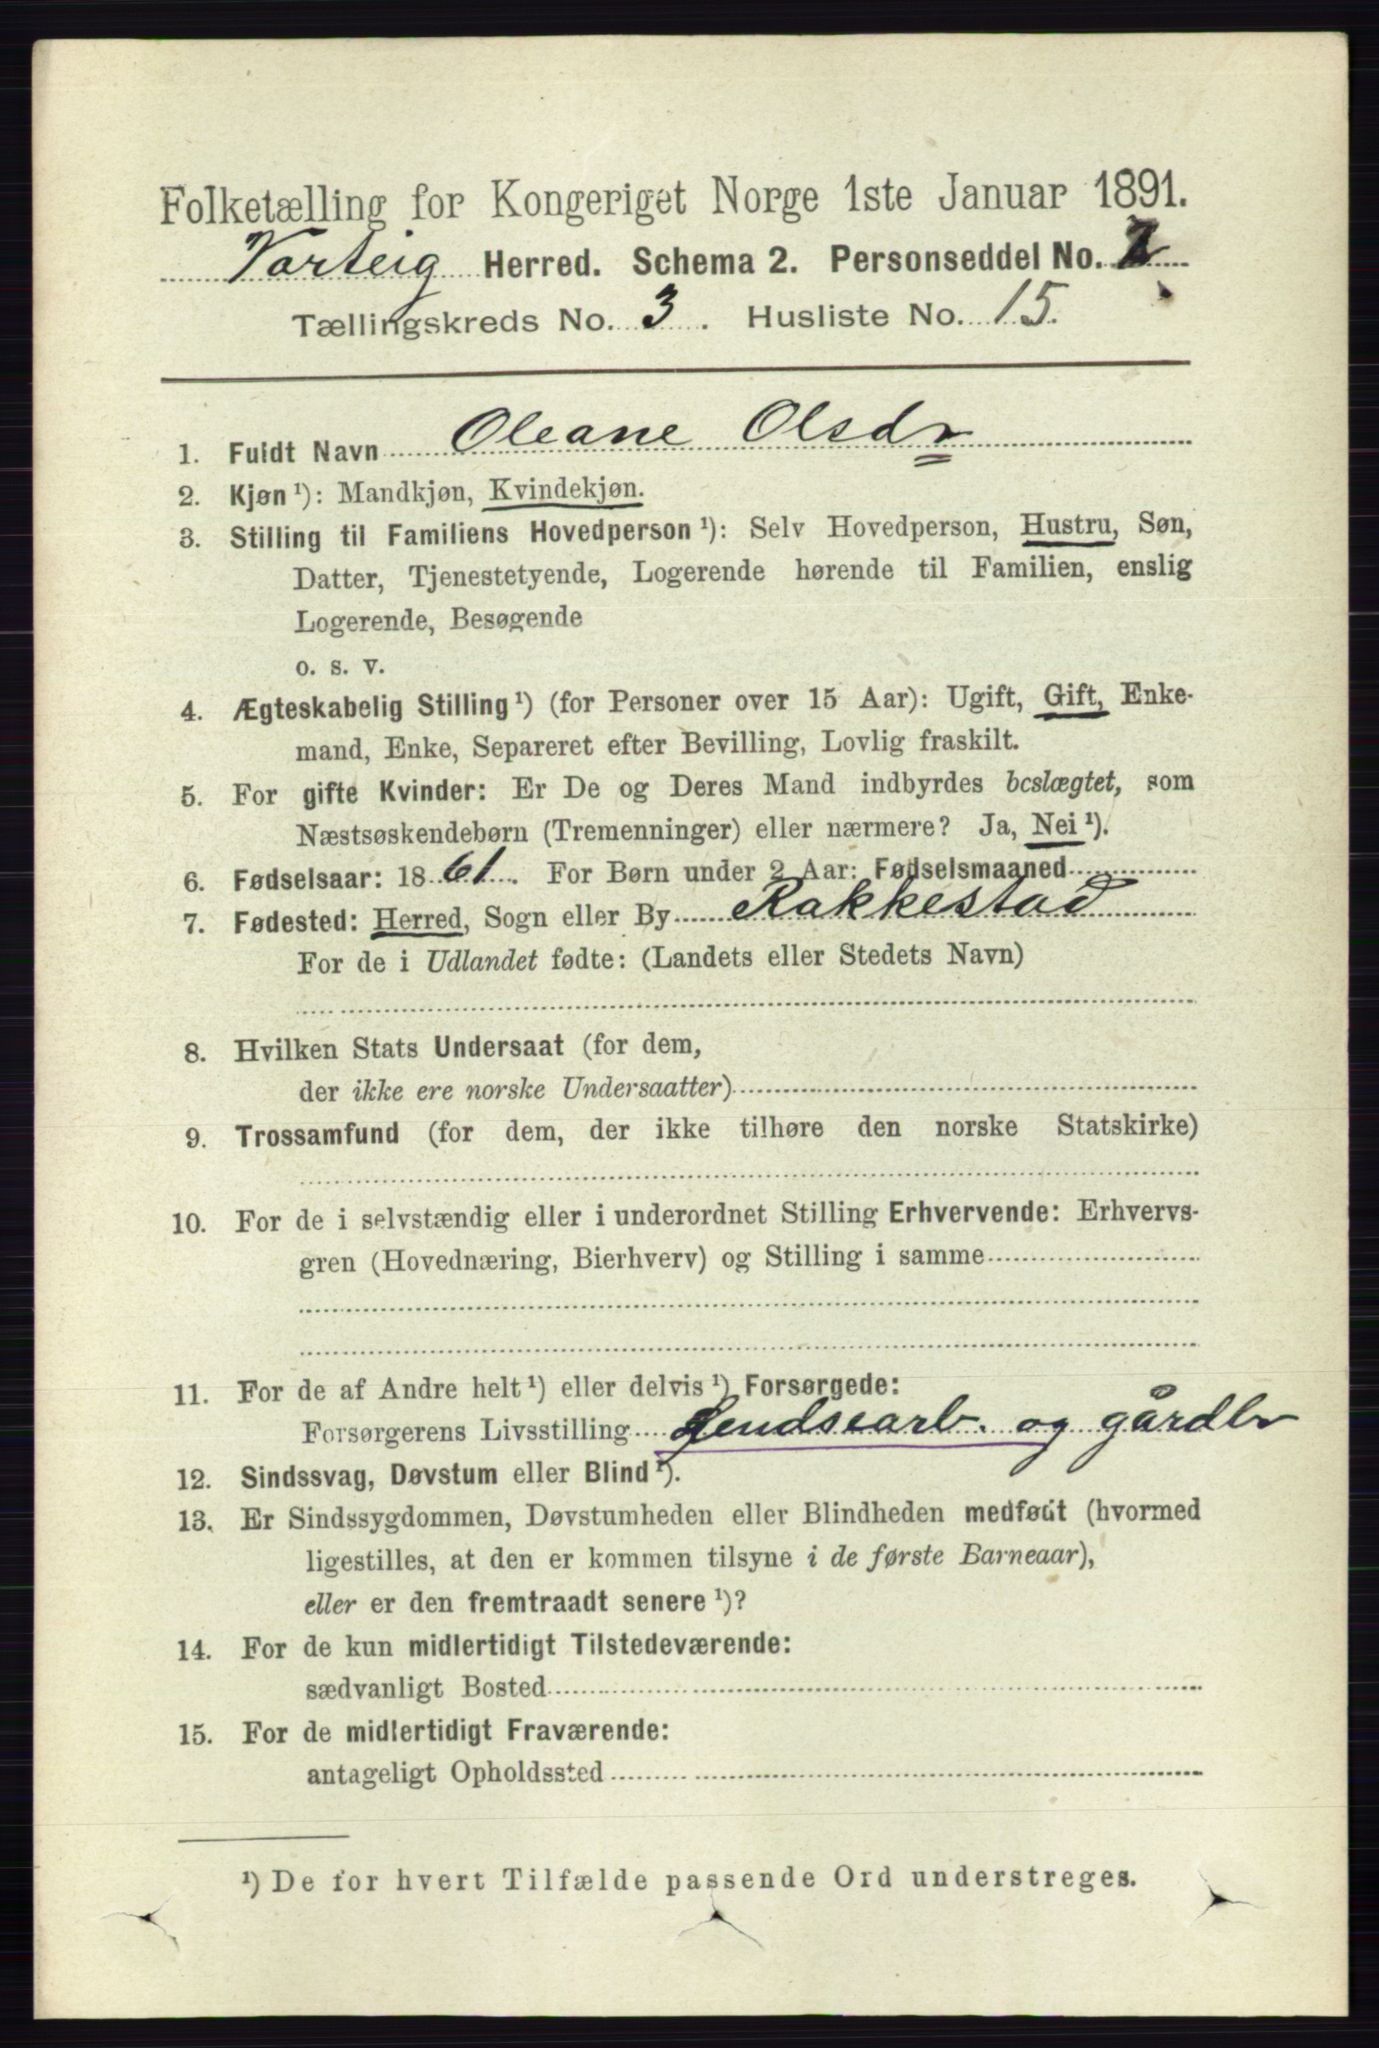 Folketælling for Kongeriget Norge 1ste Januar 1891.
Varteig Herred. Schema 2. Personseddel No. 2
Tællingskreds No. 3. Husliste No. 15.
1. Fuldt Navn Oleane Olsdr
2. Kjøn ¹): Mandkjøn, Kvindekjøn.
3. Stilling til Familiens Hovedperson ¹): Selv Hovedperson, Hustru, Søn,
Datter, Tjenestetyende, Logerende hørende til Familien, enslig
Logerende, Besøgende
o. s. v.
4. Ægteskabelig Stilling ¹) (for Personer over 15 Aar): Ugift, Gift, Enke-
mand, Enke, Separeret efter Bevilling, Lovlig fraskilt.
5. For gifte Kvinder: Er De og Deres Mand indbyrdes beslægtet, som
Næstsøskendebørn (Tremenninger) eller nærmere? Ja, Nei ¹).
6. Fødselsaar: 1861. For Børn under 2 Aar: Fødselsmaaned
7. Fødested: Herred, Sogn eller By Rakkestad
For de i Udlandet fødte: (Landets eller Stedets Navn)
8. Hvilken Stats Undersaat (for dem,
der ikke ere norske Undersaatter)
9. Trossamfund (for dem, der ikke tilhøre den norske Statskirke)
10. For de i selvstændig eller i underordnet Stilling Erhvervende: Erhvervs-
gren (Hovednæring, Bierhverv) og Stilling i samme
11. For de af Andre helt ¹) eller delvis ¹) Forsørgede:
Forsørgerens Livsstilling Lendsearb. og gårdbr
12. Sindssvag, Døvstum eller Blind ¹).
13. Er Sindssygdommen, Døvstumheden eller Blindheden medfødt (hvormed
ligestilles, at den er kommen tilsyne i de første Barneaar),
eller er den fremtraadt senere ¹)?
14. For de kun midlertidigt Tilstedeværende:
sædvanligt Bosted
15. For de midlertidigt Fraværende:
antageligt Opholdssted
¹) De for hvert Tilfælde passende Ord understreges.